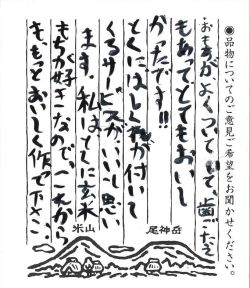 ●品物についてのご意見ご希望をお聞かせください。
おもちが、よくついていて、歯ごたえ
もあってとてもおいし
かったです!!
とくにはしがかが付いて
くるサービスが、いいと思い
ます。私はとくに玄米
もちが好きなので、これから
ももっとおいしく作って下さい。
尾神岳
米山